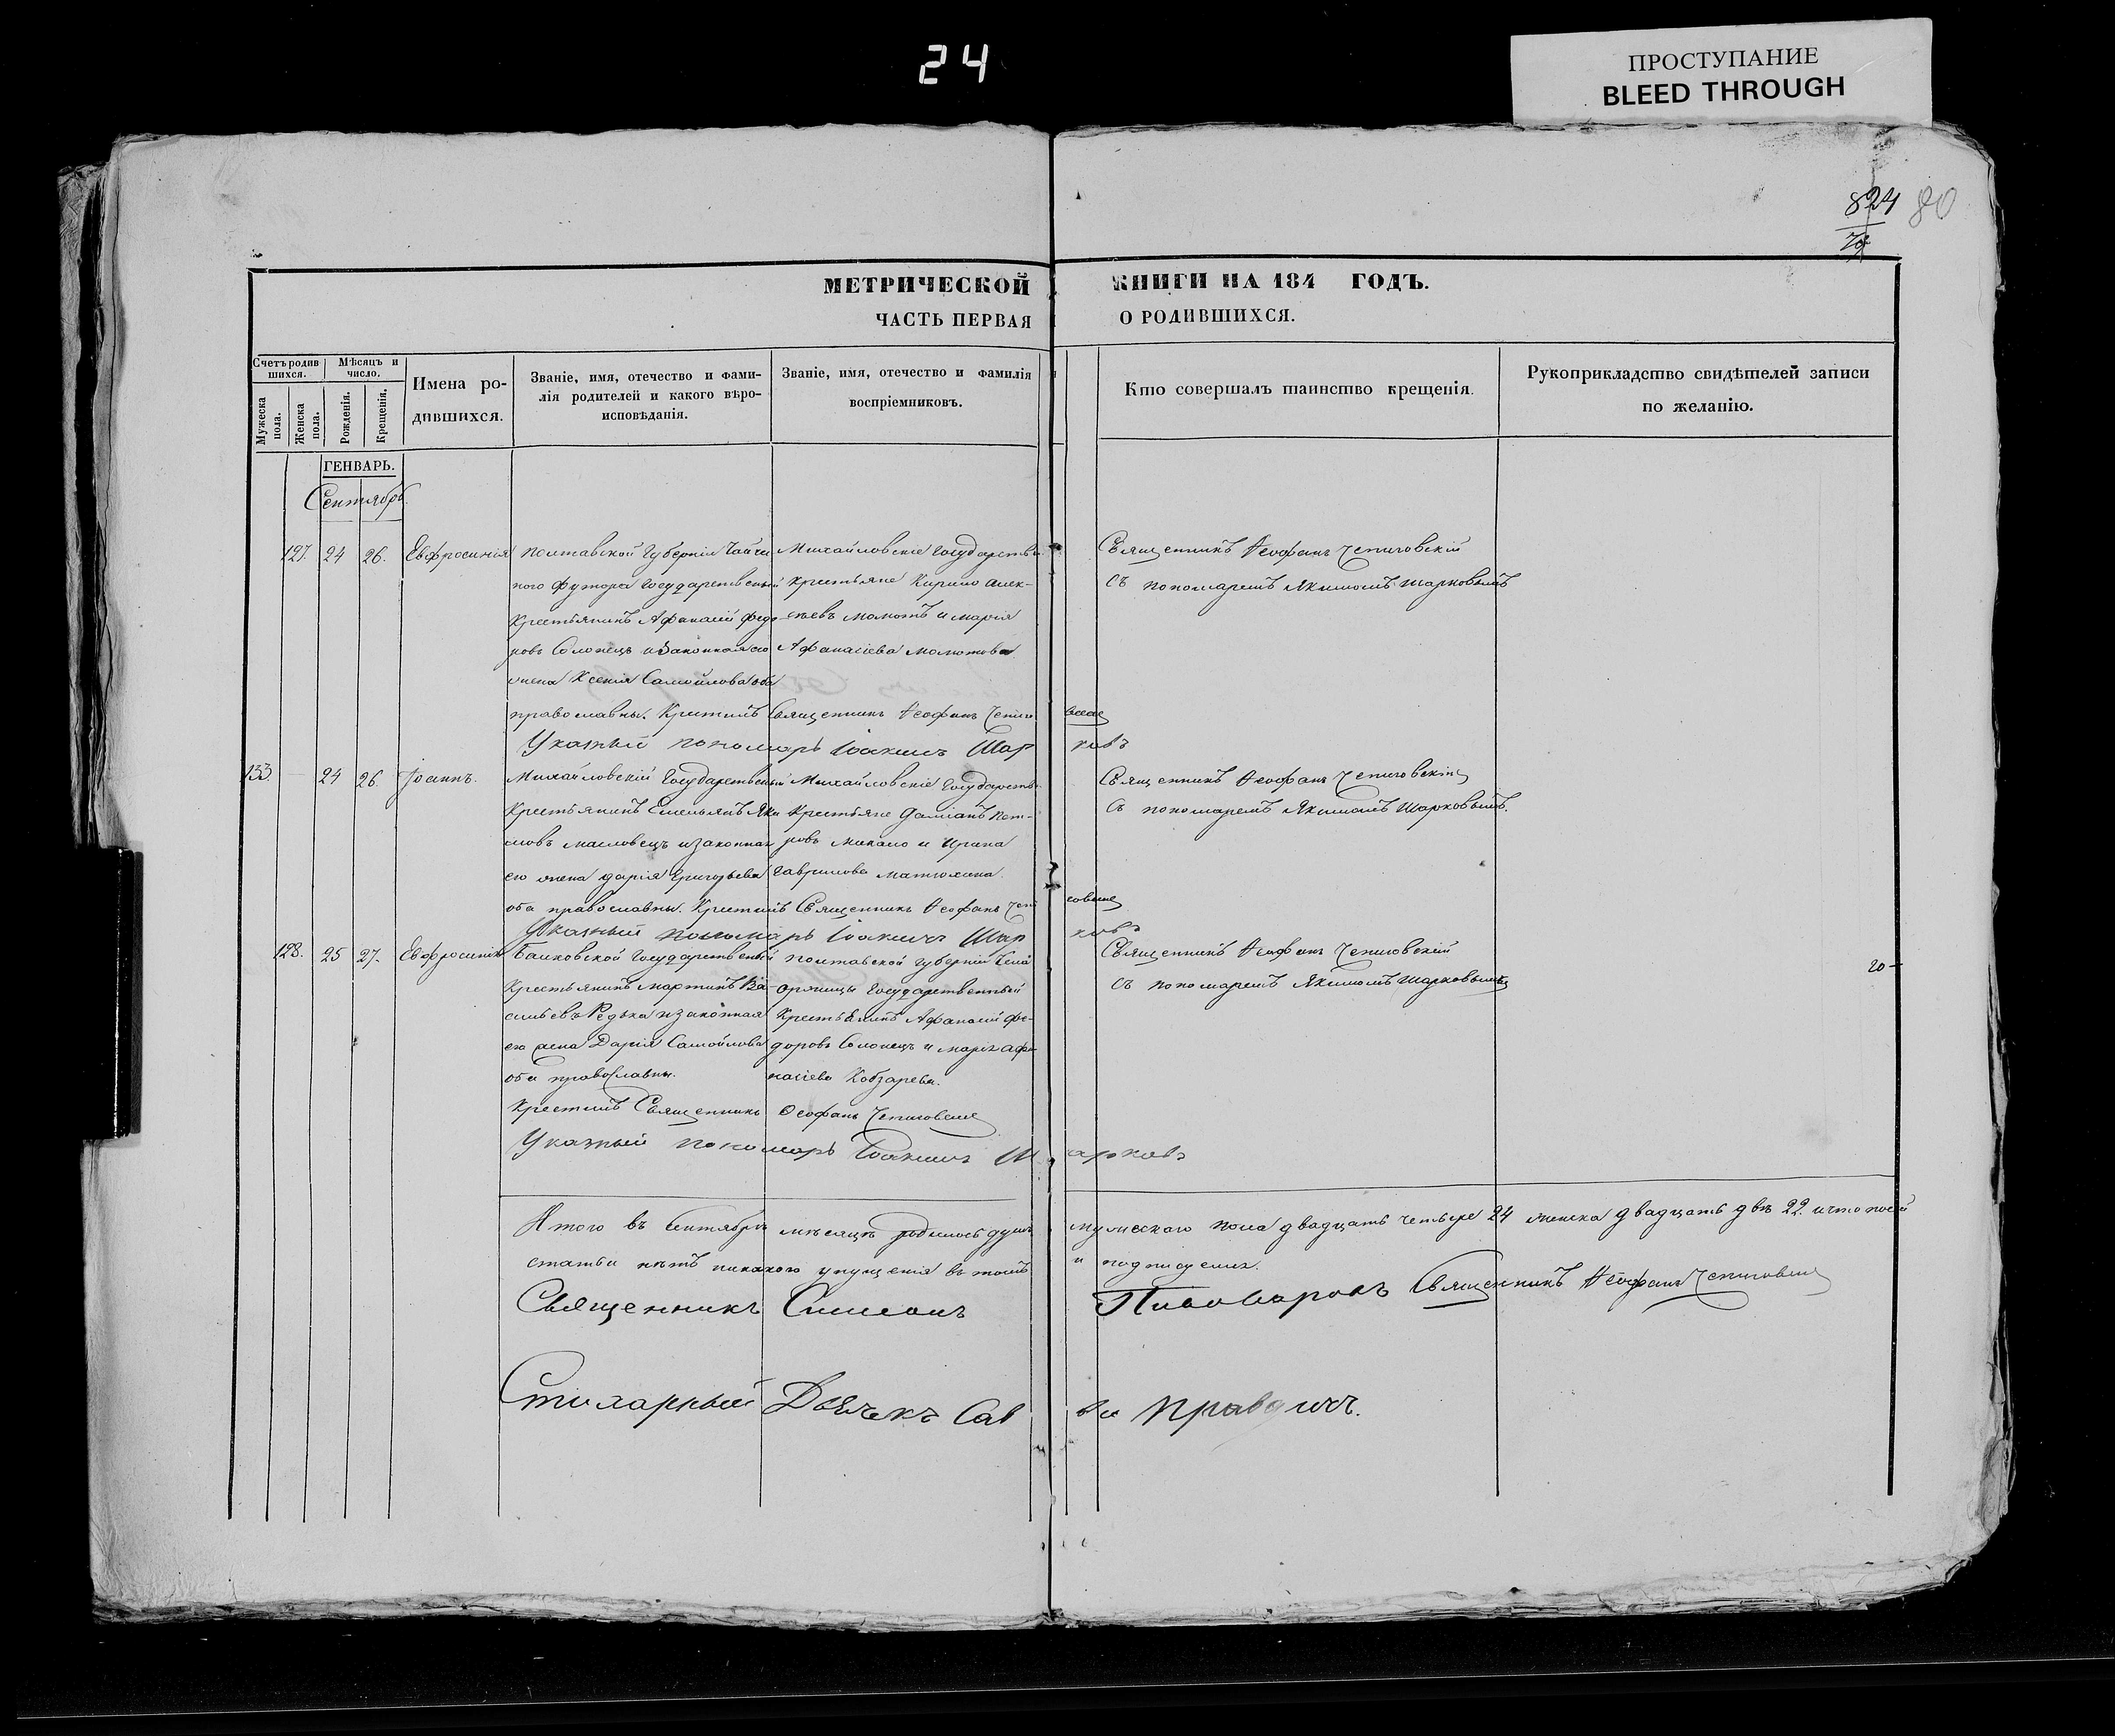 24
ПРОСТУПАНИЕ
BLEED THROUGH
824 80
МЕТРИЧЕСКОЙ КНИГИ НА 184 ГОДЪ.
ЧАСТЬ ПЕРВАЯ О РОДИВШИХСЯ.
Счетъ родив
шихся.
Мѣсяцъ и
число.
Мужеска
пола.
Женска
пола.
Рожденія.
Крещенія.
Имена ро-
дившихся.
Званіе, имя, отечество и фами-
лія родителей и какого вѣро-
исповѣданія.
Званіе, имя, отечество и фамилія
воспріемниковъ.
Кто совершалъ таинство крещенія.
Рукоприкладство свидѣтелей записи
по желанію.
ГЕНВАРЬ.
Сентябрь.
127. 24 26. Евфросинія
Полтавской Губерніи
ного Футора Государственный
Крестьянинъ Афанасій Федо-
ровъ Солонецъ и Законная его
жена Ксенія Самойлова оба
православны. Крестилъ Священникъ Ѳеофанъ
Указный пономарь Іоакимъ Шарковъ
Михайловскіе Государствен
Крестьяне Кирило Алек-
сѣевъ Момотъ и Марія
Афанасіева Момотова
Священникъ Ѳеофанъ Чепиговскій
съ пономаремъ Якимомъ Шарковымъ
133. 24 26. Іоаннъ.
Михайловскій Государственный
Крестьянинъ Емельянъ Яки
мовъ Масловецъ и законная
его жена Дарія Григорьева
оба православны. Крестилъ Священникъ Ѳеофанъ
Указный пономарь Іоакимъ Шарковъ
Михайловскіе Государств
Крестьяне Даміанъ Пет-
ровъ и Ирина
Гаврилова Матюхина.
Священникъ Ѳеофанъ Чепиговскій
съ пономаремъ Якимомъ Шарковымъ.
128. 25 27. Евфросинія
Балковской Государственный
Крестьянинъ Мартинъ Ва-
сильевъ Редька и законная
его жена Дарія Самойлова
оба православны.
Полтавской Губерніи
Государственный
Крестьянинъ Афанасій Фе-
доровъ Солонецъ и Марія Афа-
насіева Кобзарева.
Крестилъ Священникъ Ѳеофанъ Чепиговскій
Указный пономарь Іоакимъ Шарковъ
Священникъ Ѳеофанъ Чепиговскій
съ пономаремъ Якимомъ Шарковымъ
20
Итого въ Сентябрѣ мѣсяцѣ родилось душъ мужескаго пола двадцать четыре 24 женска двадцать двѣ 22. и что по сей
статьи нѣтъ никакого упущенія въ томъ и подписуемся.
Священникъ Симеонъ Пивоваровъ Священникъ Ѳеофанъ Чепиговскій
Стихарный Дьячекъ Савва